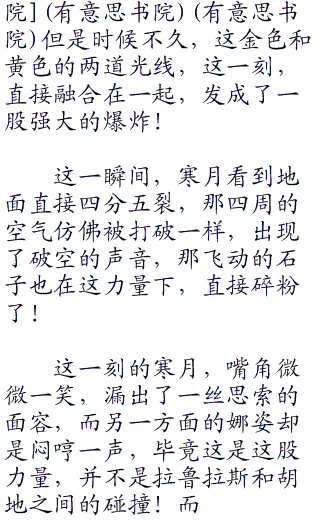 院](有意思书院)(有意思书
院)但是时候不久，这金色和
黄色的两道光线，这一刻，
直接融合在一起，发成了一
股强大的爆炸！
这一瞬间，寒月看到地
面直接四分五裂，那四周的
空气仿佛被打破一样，出现
了破空的声音，那飞动的石
子也在这力量下，直接碎粉
了！
这一刻的寒月，嘴角微
微一笑，漏出了一丝思索的
面容，而另一方面的娜姿却
是闷哼一声，毕竟这是这股
力量，并不是拉鲁拉斯和胡
地之间的碰撞！而